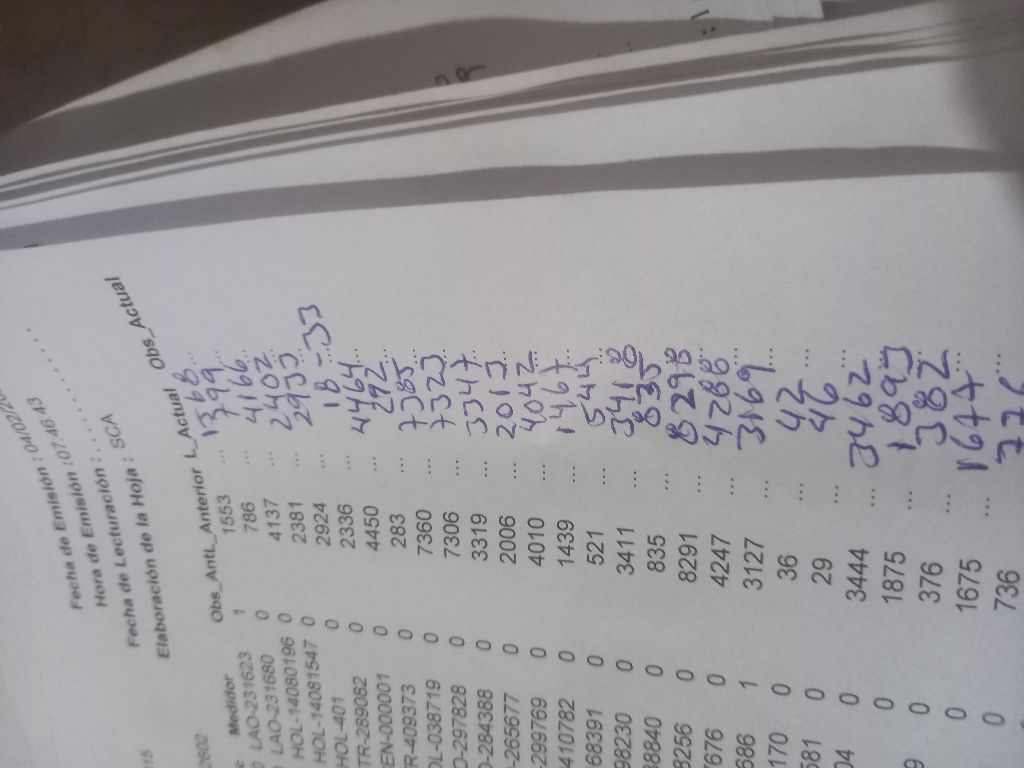 Fecha de Emisión : 04/02/20
Hora de Emisión : 07:46:43
Fecha de Lecturación : . . . . . . . . . . . . .
Elaboración de la Hoja : SCA
Medidor Obs_Ant L_Anterior L_Actual Obs_Actual
LAO-231623 1 1553 ... 1368 ...
LAO-231680 0 786 ... 799 ...
HOL-14080196 0 4137 ... 4166 ...
HOL-14081547 0 2381 ... 2402 ...
HOL-401 0 2924 ... 2933 ...
TR-289082 0 2336 ... 18 -33
EN-0000001 0 4450 ... 4464 ...
R-409373 0 283 ... 292 ...
OL-038719 0 7360 ... 7385 ...
O-297828 0 7306 ... 7323 ...
-284388 0 3319 ... 3347 ...
-265677 0 2006 ... 2013 ...
299769 0 4010 ... 4042 ...
410782 0 1439 ... 1467 ...
68391 0 521 ... 544 ...
98230 0 3411 ... 3418 ...
88840 0 835 ... 835 ...
8256 0 8291 ... 8298 ...
7676 0 4247 ... 4288 ...
686 1 3127 ... 3169 ...
170 0 36 ... 42 ...
581 0 29 ... 46 ...
04 0 3444 ... 3462 ...
0 1875 ... 1893 ...
0 376 ... 382 ...
0 1675 ... 1677 ...
0 736 ... 776 ...